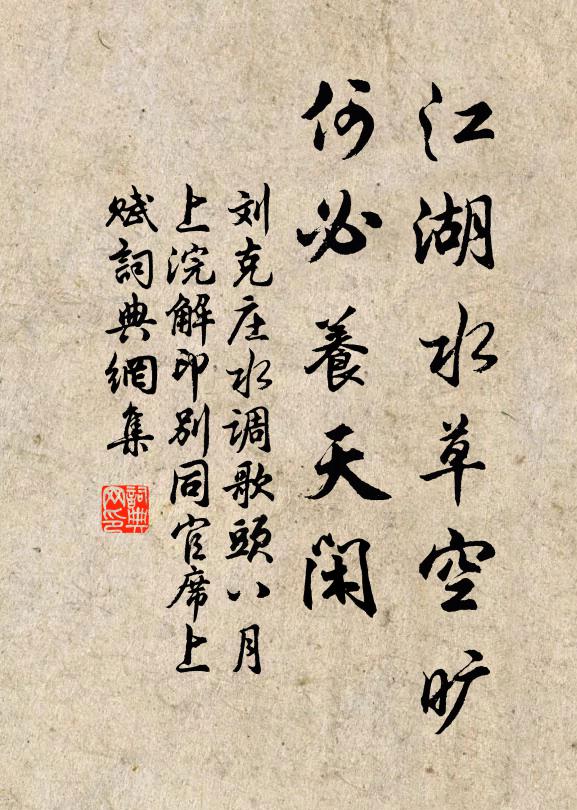 江湖水草空旷
何必養天闲
刘克庄水调歌頭八月
上浣解印别同官席上
赋詞典網集
詞典
网印